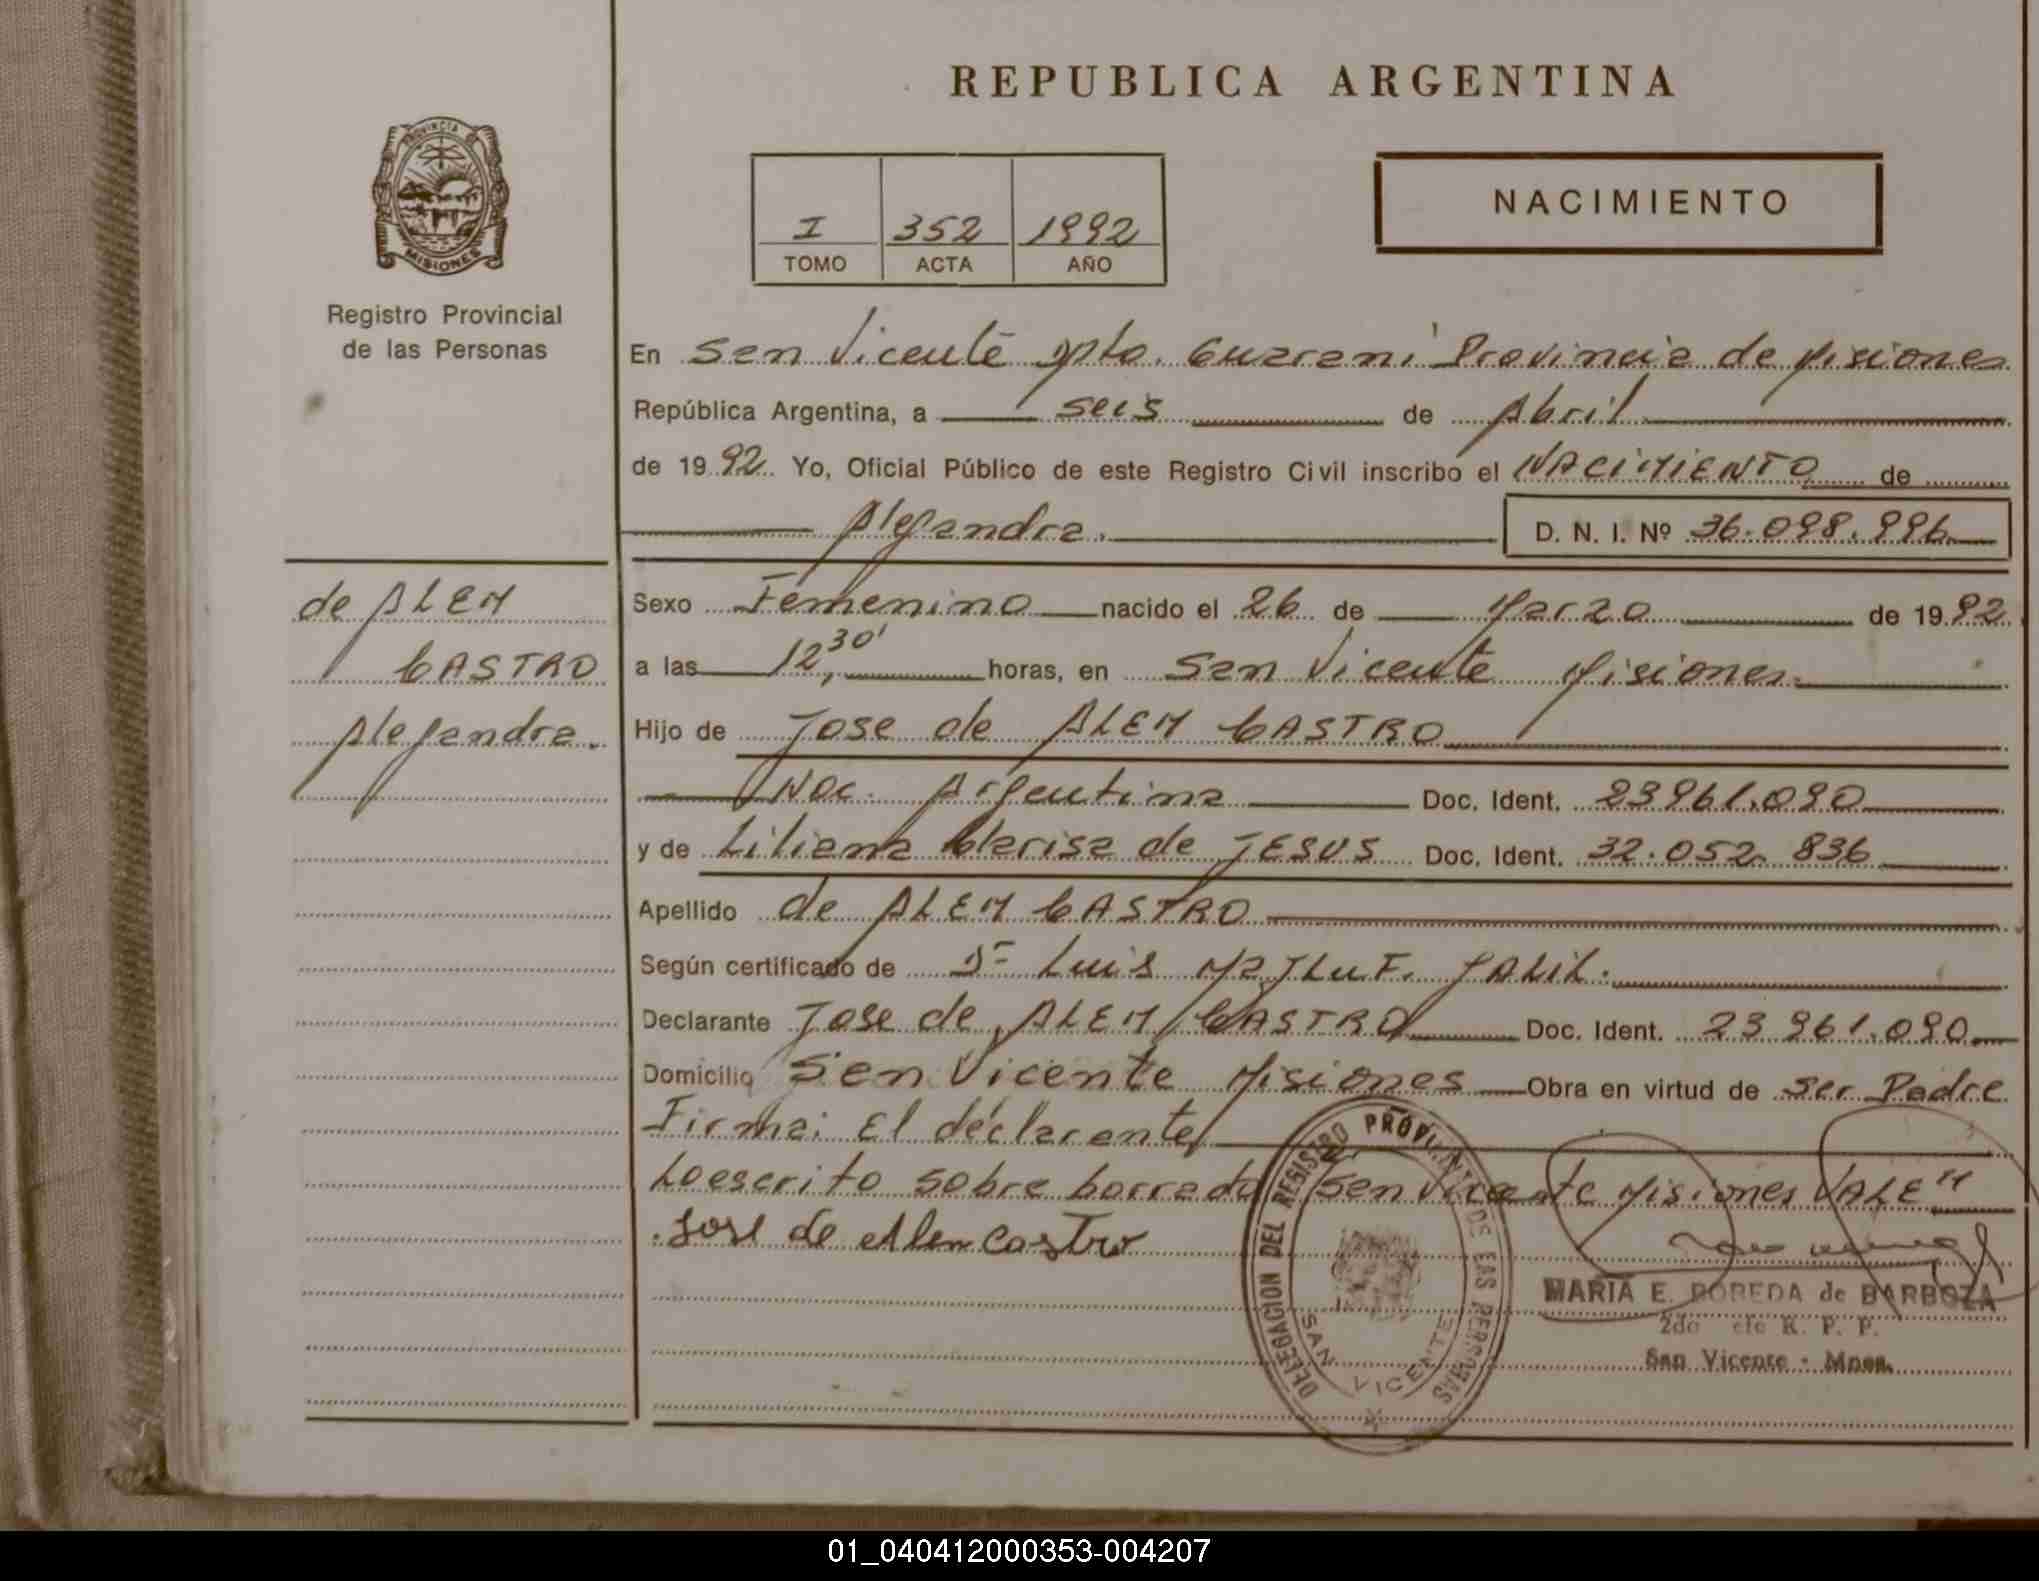 REPUBLICA ARGENTINA
PROVINCIA DE
MISIONES
Registro Provincial
de las Personas
I 352 1992
TOMO ACTA AÑO
NACIMIENTO
En San Vicente Dpto. Guarani Provincia de Misiones
República Argentina, a seis de Abril
de 1992. Yo, Oficial Público de este Registro Civil inscribo el NACIMIENTO de
Alejandra. D. N. I. Nº 36.098.996
de ALEM
CASTRO
Alejandra.
Sexo Femenino nacido el 26 de Marzo de 1992
a las 12,30' horas, en San Vicente Misiones.
Hijo de Jose de ALEM CASTRO
Nac. Argentina Doc. Ident. 23961.090
y de Liliana Clarisa de JESUS Doc. Ident. 32.052.836
Apellido de ALEM CASTRO
Según certificado de Dr Luis MAJLUF. JALIL.
Declarante Jose de ALEM CASTRO Doc. Ident. 23961.090
Domicilio San Vicente Misiones Obra en virtud de Ser Padre
Firma: El declarante
Lo escrito sobre borrado San Vicente Misiones VALEM
Jose de Alen Castro
DELEGACION DEL REGISTRO PROVINCIAL DE LAS PERSONAS
SAN VICENTE
MARIA E. POREDA de BARBOZA
2do R. P. P.
San Vicente - Mnes.
01_040412000353-004207